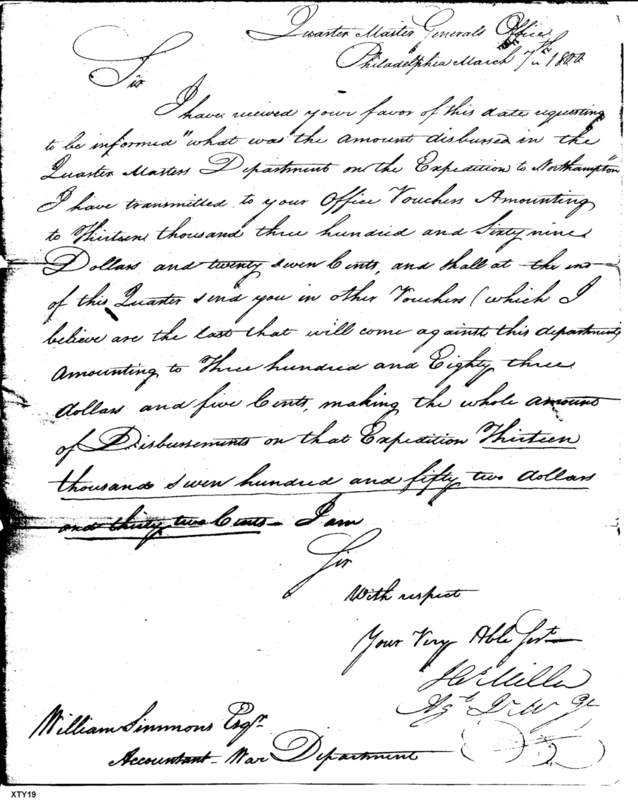 Quarter Master Generals Office
Philadelphia March 7th 1800
Sir
I have received your favor of this date requesting
to be informed "what was the amount disbursed in the
Quarter Masters Department on the Expedition to Northampton"
I have transmitted to your Office Vouchers Amounting
to Thirteen thousand three hundred and Sixty nine
Dollars and twenty seven Cents, and shall at the end
of this Quarter send you in other Vouchers (which I
believe are the last that will come against this department)
Amounting to Three hundred and Eighty three
dollars and five Cents, making the whole amount
of Disbursements on that Expedition Thirteen
thousand seven hundred and fifty two dollars
and thirty two Cents - I am
Sir
With respect
Your Very Able Servt
Miller
William Simmons Esqr
Accountant War Department
XTY19